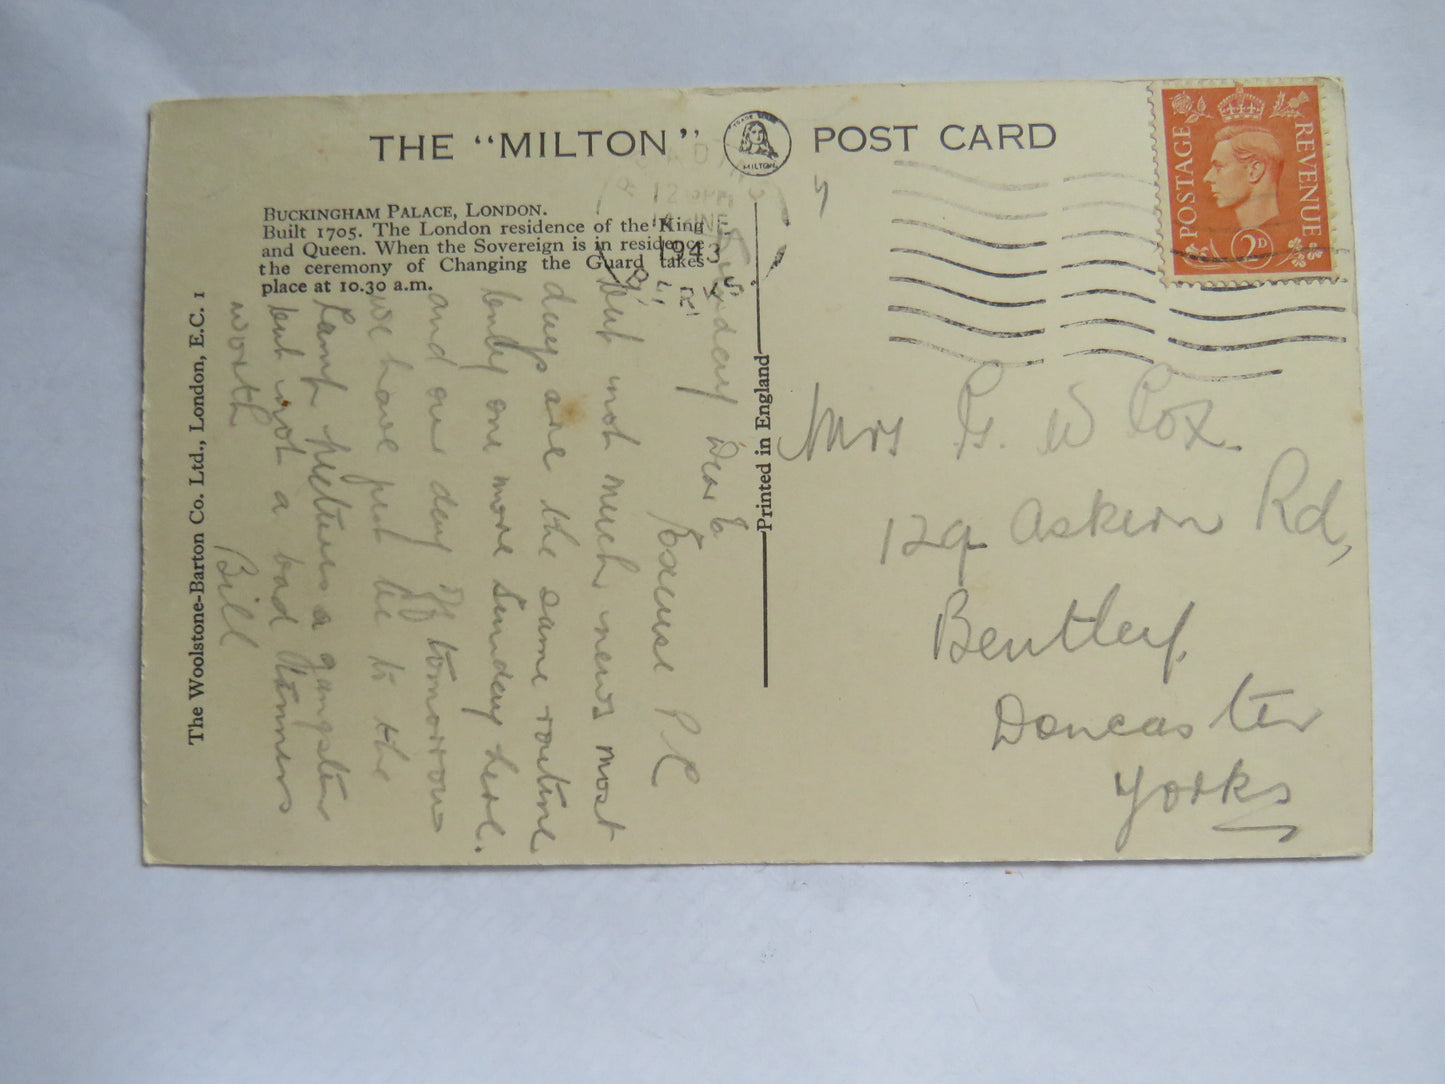 THE "MILTON" POST CARD
TRADE MARK
MILTON
BUCKINGHAM PALACE, LONDON.
Built 1705. The London residence of the King
and Queen. When the Sovereign is in residence
the ceremony of Changing the Guard takes
place at 10.30 a.m.
The Woolstone-Barton Co. Ltd., London, E.C. 1
Printed in England
POSTAGE
REVENUE
2D
12
14 JNE
1943
Sunday Dear
Excuse P.C
but not much news most
days are the same routine
only one more Sunday here.
and our day off tomorrow
we have just be to the
Camp pictures a gangster
but not a bad
worth
Bill
Mrs G. W Cox.
129 Askern Rd,
Bentley.
Doncaster
Yorks